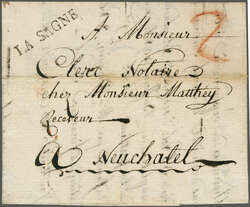 LA SAGNE
A Monsieur
Clerc Notaire
chez Monsieur Matthey
Receveur
2
A Neuchatel